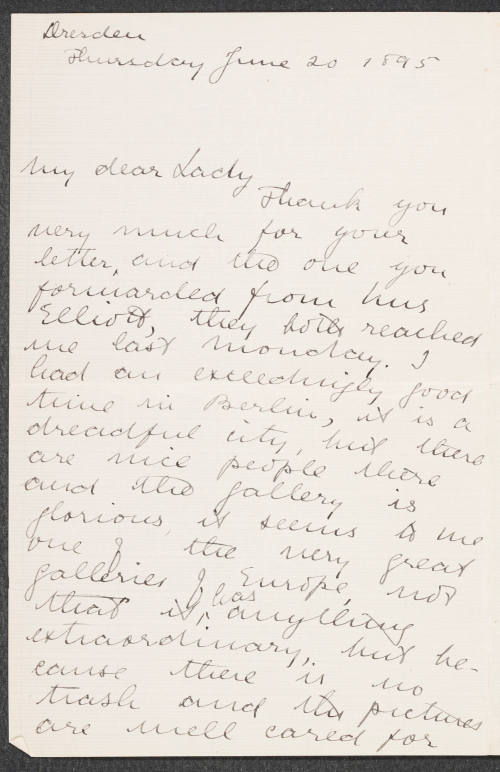 Dresden
Thursday June 20 1895
My dear Lady
Thank you
very much for your
letter, and the one you
forwarded from Mrs
Elliott, they both reached
me last Monday. I
had an exceedingly good
time in Berlin, it is a
dreadful city, but there
are nice people there
and the gallery is
glorious, it seems to me
one of the very great
galleries of Europe, not
that it has anything
extraordinary, but be-
cause there is no
trash and the pictures
are well cared for